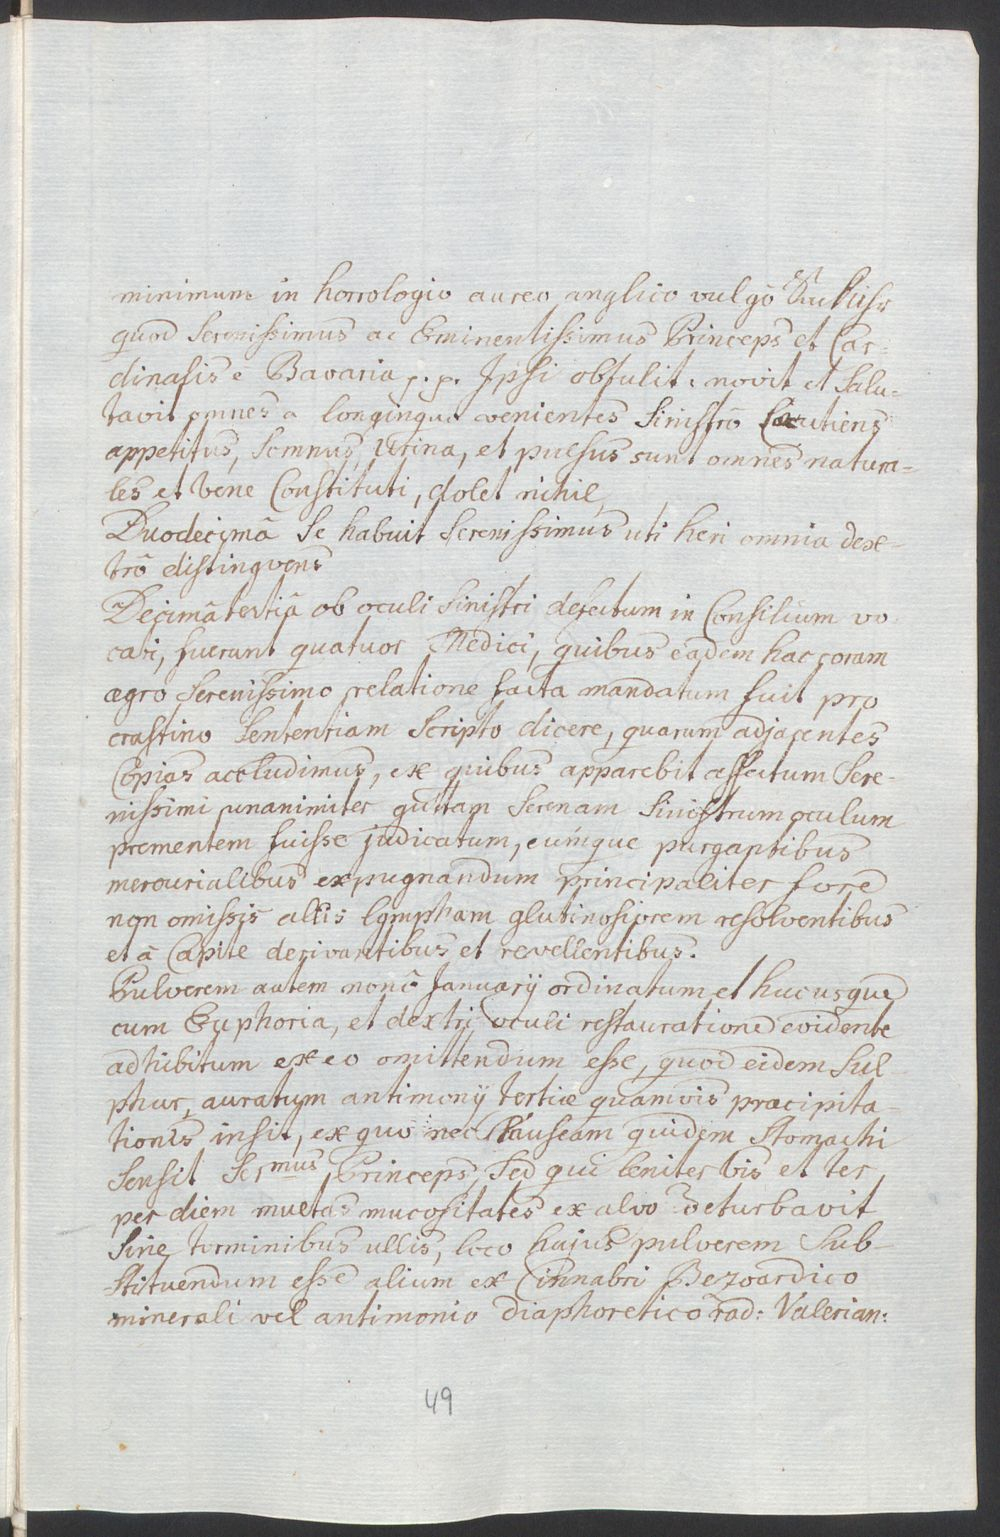 minimum in horrologio aureo anglico vulgò
quod Serenissimus ac Eminentissimus Princeps et Car-
dinalis è Bavaria p. p. Ipsi obtulit. novit et Salu-
tavit omnes a longinquo venientes Sinistrô Cæcutiens
appetitus, Somnus, Urina, et pulsus sunt omnes natura-
les et bene Constituti, dolet nihil
Duodecimâ Se habuit Serenissimus uti heri omnia dex-
trô distingvens
Decimâtertiâ ob oculi Sinistri defectum in Consilium vo
cati, fuerunt quatuor Medici, quibus eadem hac coram
ægro Serenissimo relatione facta mandatum fuit pro
crastino Sententiam Scripto dicere, quarum adjacentes
Copias accludimus, ex quibus apparebit affectum Sere-
nissimi unanimiter guttam Serenam Sinistrum oculum
prementem fuisse judicatum, eumque purgantibus
mercurialibus expugnandum principaliter fore
non omissis aliis lÿmpham glutinosiorem resolventibus
et à Capite derivantibus et revellentibus.
Pulverem autem nonâ Januarÿ ordinatum et hucusque
cum Euphoria, et dextri oculi restauratione evidente
adhibitum ex eo omittendum esse, quod eidem Sul-
phur, auratum antimonÿ tertiæ quamvis præcipita-
tionis insit, ex quo nec Nauseam quidem Stomachi
Sensit Ser.mus Princeps, Sed qui leniter bis et ter
per diem multas mucositates ex alvo deturbavit
Sine torminibus ullis, loco hujus pulverem Sub-
stituendum esse alium ex Cinnabri Bezoardico
minerali vel antimonio diaphoretico rad: Valerian:
49